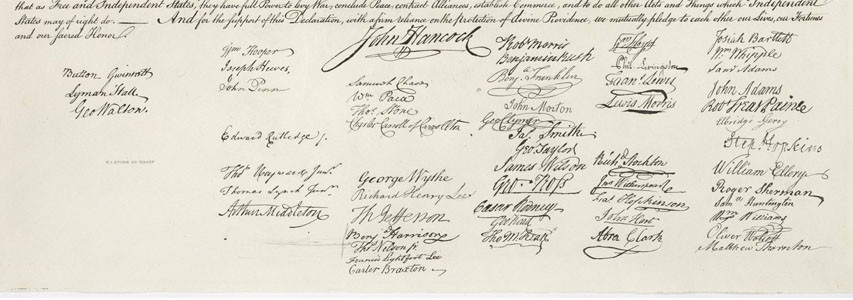 that as Free and Independent States, they have full Power to levy War, conclude Peace, contract Alliances, establish Commerce, and to do all other Acts and Things which Independent
States may of right do. — And for the support of this Declaration, with a firm reliance on the protection of divine Providence, we mutually pledge to each other our Lives, our Fortunes
and our sacred Honor.
Button Gwinnett
Lyman Hall
Geo Walton.
Wm Hooper
Joseph Hewes,
John Penn
Edward Rutledge /.
Thos Heyward Junr.
Thomas Lynch Junr.
Arthur Middleton
John Hancock
Samuel Chase
Wm Paca
Thos Stone
Charles Carroll of Carrollton
George Wythe
Richard Henry Lee
Th Jefferson
Benj Harrison
Thos Nelson jr.
Francis Lightfoot Lee
Carter Braxton
Robt Morris
Benjamin Rush
Benja Franklin
John Morton
Geo Clymer
Jas Smith
Geo Taylor
James Wilson
Geo. Ross
Caesar Rodney
Geo Read
Tho M:Kean
Wm Floyd
Phil. Livingston
Frans Lewis
Lewis Morris
Richd Stockton
Jno Witherspoon
Fras Hopkinson
John Hart
Abra Clark
Josiah Bartlett
Wm Whipple
Saml Adams
John Adams
Robt Treat Paine
Elbridge Gerry
Step. Hopkins
William Ellery
Roger Sherman
Saml Huntington
Wm Williams
Oliver Wolcott
Matthew Thornton